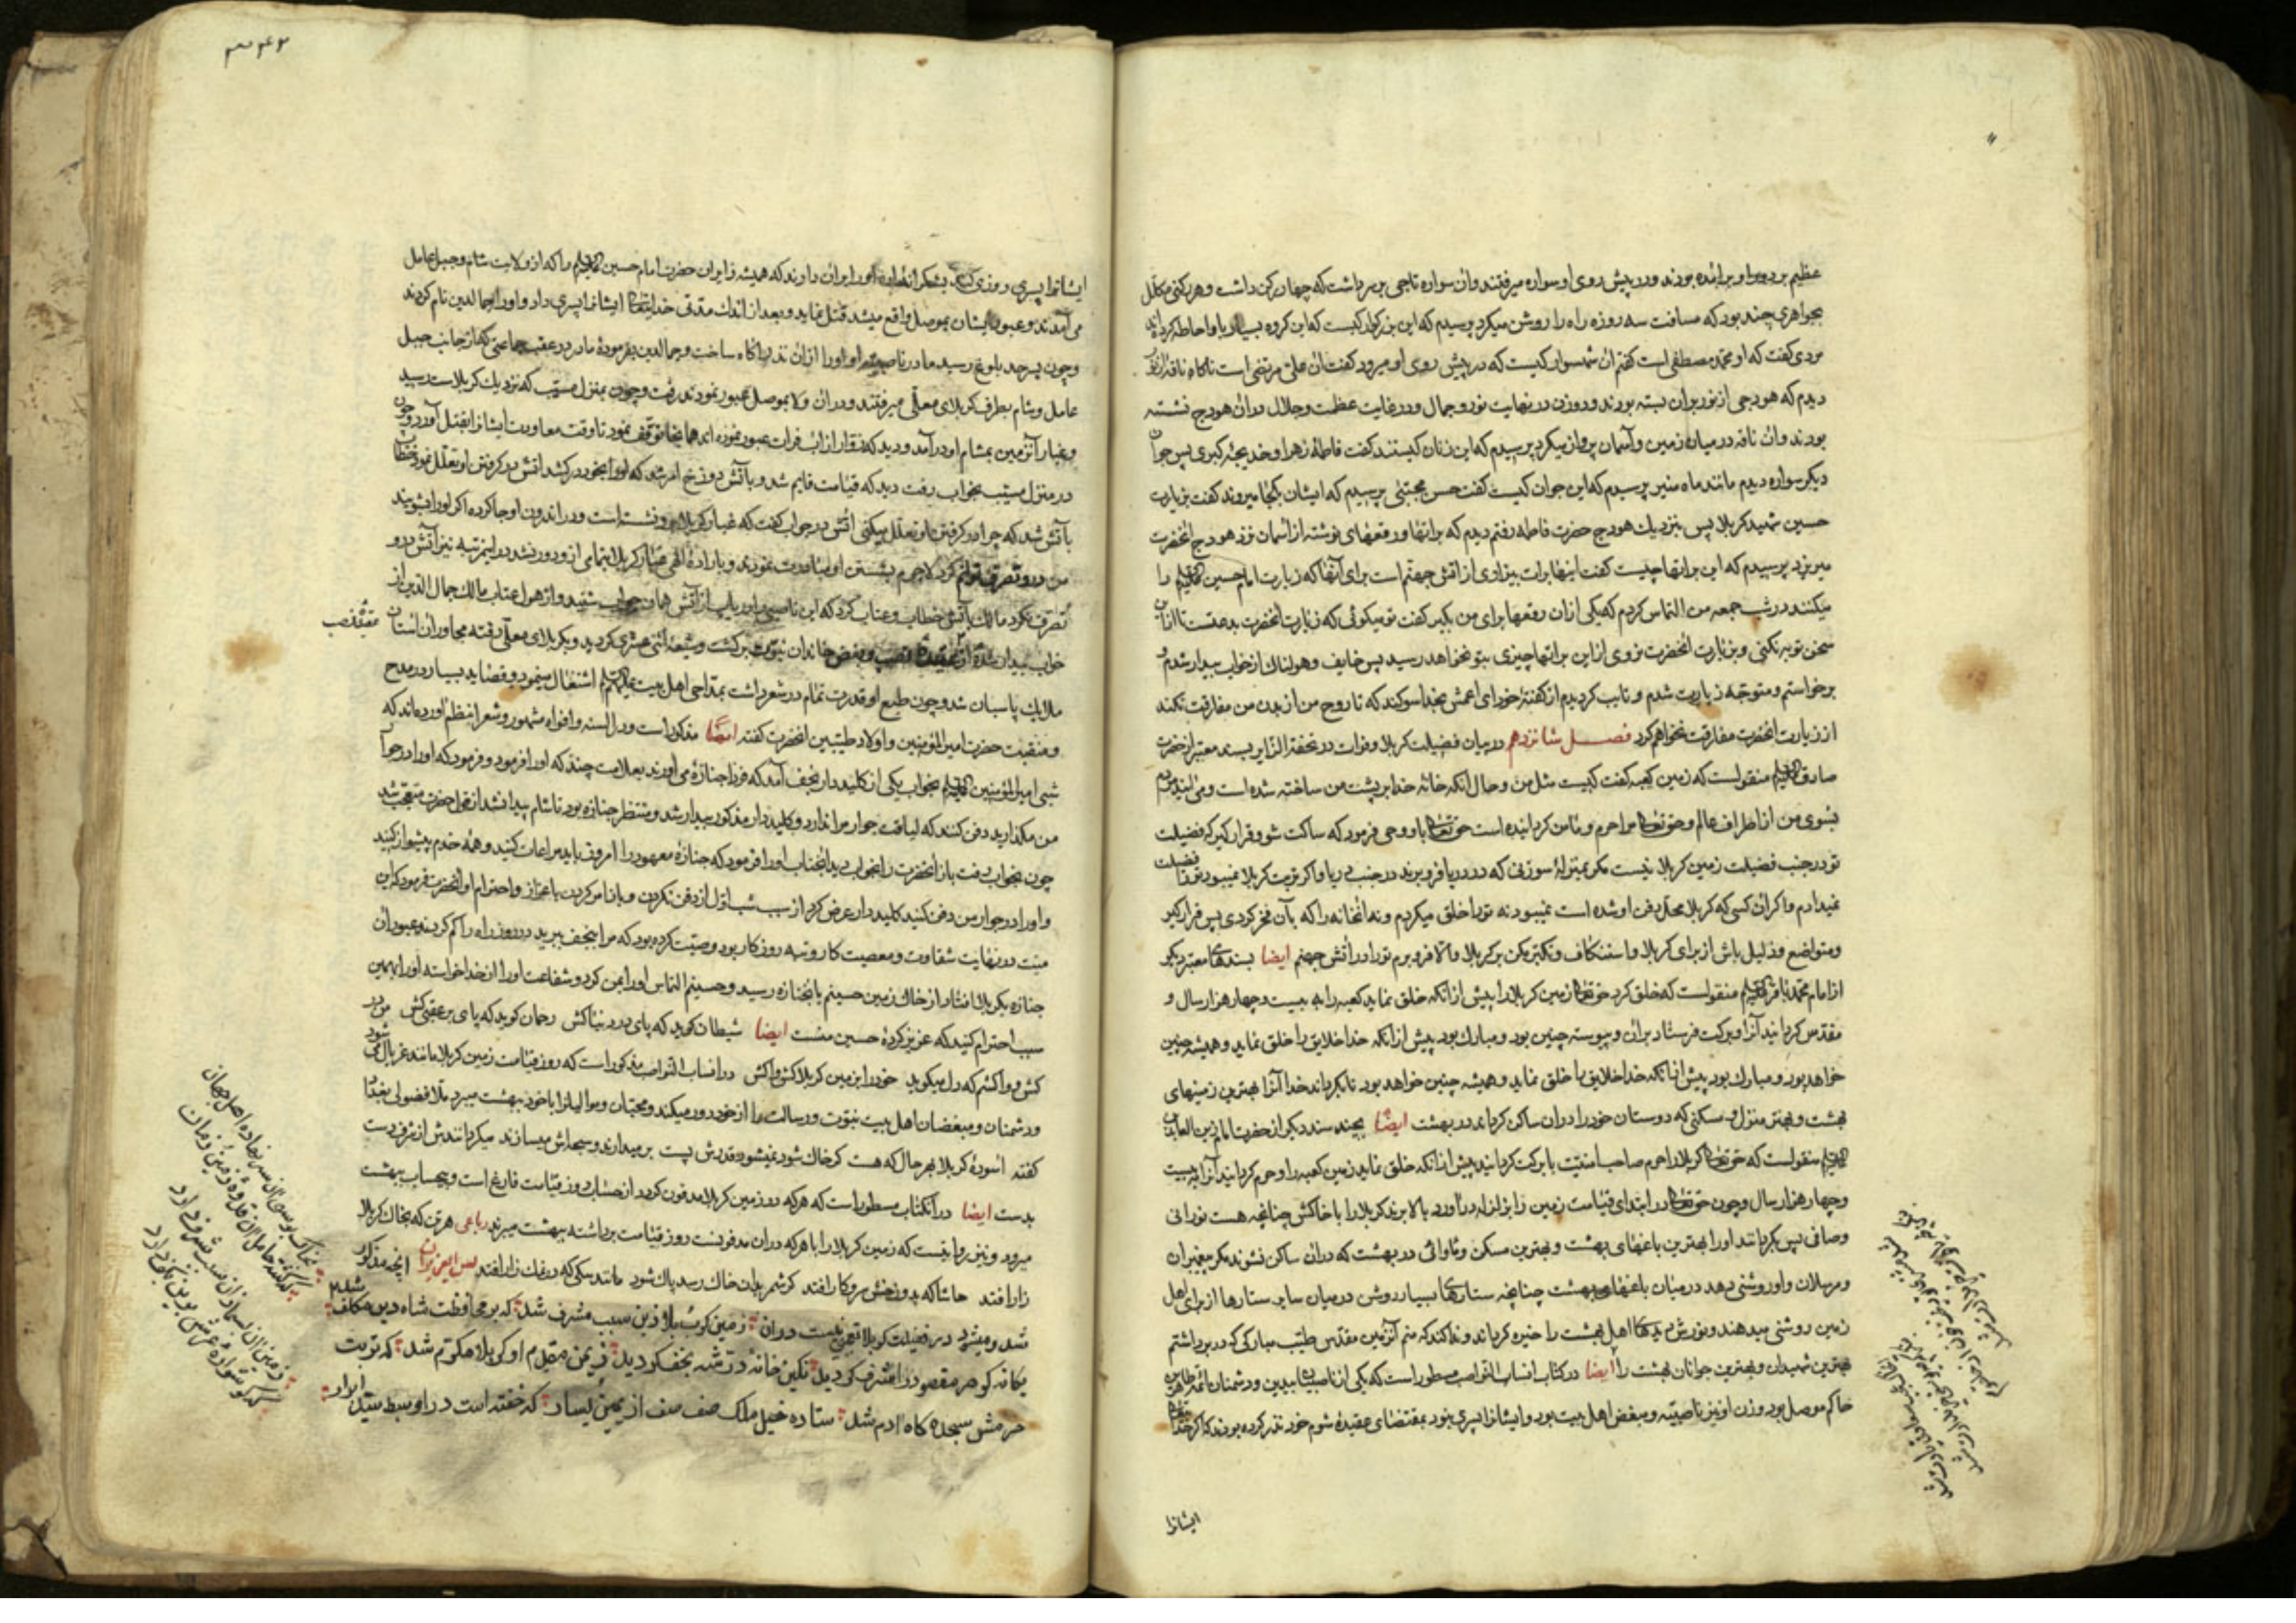 عظیم بر دور او برآمده بودند و در پیش روی او سواره میرفتند و آن سواره تاجی بر سر داشت که چهار رکن داشت و هر رکنی مکلل
بجواهری چند بود که مسافت سه روزه راه را روشن میکرد پرسیدم که این بزرگوار کیست که این گروه بسیار با او احاطه کرده‌اند
مردی گفت که او محمد مصطفی است گفتم آن شهسوار کیست که در پیش روی او میرود گفت آن علی مرتضی است ناگاه ناقه از نور
دیدم که هودجی از نور بران بسته بودند و دو زن در نهایت نور و جمال و در غایت عظمت و جلال دران هودج نشسته
بودند و ان ناقه در میان زمین و آسمان پرواز میکرد پرسیدم که این زنان کیستند گفت فاطمه زهرا و خدیجه کبری پس جوان
دیگر سواره دیدم مانند ماه منیر پرسیدم که این جوان کیست گفت حسن مجتبی پرسیدم که ایشان بکجا میروند گفت بزیارت
حسین شهید کربلا پس بنزدیك هودج حضرت فاطمه رفتم دیدم که براتها و رقعهای نوشته از آسمان نزد هودج آنحضرت
میریزد پرسیدم که این براتها چیست گفت اینها برات بیزاری از آتش جهنم است برای آنها که زیارت امام حسین علیه‌السلام را
میکنند در شب جمعه من التماس کردم که یکی ازان رقعها برای من بگیر گفت تو میگوئی که زیارت آنحضرت بدعتست تا ازان
سخن توبه نکنی و بزیارت آنحضرت نروی از این براتها چیزی بتو نخواهد رسید پس خایف و هولناك از خواب بیدار شدم و
برخواستم و متوجه زیارت شدم و تایب گردیدم از گفته خود ای اعمش بخدا سوگند که تا روح من از بدن من مفارقت نکند
از زیارت آنحضرت مفارقت نخواهم کرد فصل شانزدهم در بیان فضیلت کربلا و فرات در تحفة الزایر بسند معتبر از حضرت
صادق علیه‌السلام منقولست که زمین کعبه گفت کیست مثل من و حال آنکه خانه خدا بر پشت من ساخته شده است و می‌آیند مردم
بسوی من از اطراف عالم و حق تعالی مرا حرم و مأمن گردانیده است حق تعالی باو وحی فرمود که ساکت شو و قرار گیر که فضیلت
تو در جنب فضیلت زمین کربلا نیست مگر بمنزله سوزنی که در دریا فرو برند در جنب دریا و اگر تربت کربلا نمیبود ترا فضیلت
نمیدادم و اگر آن کسی که کربلا محل دفن او شده است نمیبود نه ترا خلق میکردم و نه آنخانه را که بآن فخر کردی پس قرار گیر
و متواضع و ذلیل باش از برای کربلا و استنکاف و تکبر مکن بر کربلا و الا فرو برم ترا در آتش جهنم ایضا بسندهای معتبر دیگر
از امام محمد باقر علیه‌السلام منقولست که خلق کرد حق تعالی زمین کربلا را پیش از آنکه خلق نماید کعبه را به بیست و چهار هزار سال و
مقدس گردانید آنرا و برکت فرستاد بران و پیوسته چنین بود و مبارك بود پیش از آنکه خدا خلایق را خلق نماید و همیشه چنین
خواهد بود و مبارك بود پیش از آنکه خدا خلایق را خلق نماید و همیشه چنین خواهد بود تا بگرداند خدا آنرا بهترین زمینهای
بهشت و بهتر منزل و مسکنی که دوستان خود را دران ساکن گرداند در بهشت ایضا بچند سند دیگر از حضرت امام زین العابدین
علیه‌السلام منقولست که حق تعالی کربلا را حرم صاحب امنیت با برکت گردانید پیش از آنکه خلق نماید زمین کعبه را و حرم گرداند آنرا به بیست
و چهار هزار سال و چون حق تعالی در ابتدای قیامت زمین را بزلزله درآورد بالا برند کربلا را با خاکش چنانچه هست نورانی
و صافی پس بگردانند او را بهترین باغهای بهشت و بهترین مسکن و مأوائی در بهشت که دران ساکن نشوند مگر پیغمبران
و مرسلان و او روشنی دهد در میان باغهای بهشت چنانچه ستارهای بسیار روشن در میان سایر ستارها از برای اهل
زمین روشنی میدهند و نورش دیدهای اهل بهشت را خیره گرداند و ندا کند که منم آنزمین مقدس طیب مبارکی که در بر داشتم
بهترین شهیدان و بهترین جوانان بهشت را ایضا در کتاب انساب النواصب مسطور است که یکی از ناصبیان بیدین و دشمنان ائمه طاهرین
حاکم موصل بود و زن او نیز ناصبیه و مبغض اهل بیت بود و ایشانرا پسری نبود بمقتضای عقیده شوم خود نذر کرده بودند که اگر خدا
ایشانرا
ایشانرا پسری روزی کند بشکرانه او را بران دارند که همیشه زایران حضرت امام حسین علیه‌السلام را که از ولایت شام و جبل عامل
می‌آمدند و عبور ایشان بموصل واقع میشد قتل نماید و بعد از اندك مدتی خدایتعالی ایشانرا پسری داد و او را جمالدین نام کردند
و چون پسر بحد بلوغ رسید مادر ناصبیه او او را ازان نذر آگاه ساخت و جمالدین بفرموده مادر در عقب جماعتی که از جانب جبل
عامل و شام بطرف کربلای معلی میرفتند و دران ولا بموصل عبور نمودند رفت و چون بمنزل مسیب که نزدیك کربلاست رسید
و غبار آنزمین بمشام او درآمد و دید که زوار از آب فرات عبور نموده اند همانجا توقف نمود تا وقت معاودت ایشانرا بقتل آورد و چون
در منزل مسیب بخواب رفت دید که قیامت قایم شد و بآتش دوزخ امر شد که او را بخود درکشد آتش در گرفتن او تعلل نمود خطاب
بآتش شد که چرا در گرفتن او تعلل میکنی آتش در جواب گفت که غبار کربلا برو نشسته است و در اندرون او جا کرده اگر او را بشویند
من درو تصرف توانم کرد لاجرم بشستن او مبادرت نمودند و باراده الهی غبار کربلا بتمامی ازو دور نشد درین مرتبه نیز آتش درو
تصرف نکرد مالك بآتش خطاب و عتاب کرد که این ناصبی را دریاب از آتش همان جواب شنید و از هول عتاب مالك جمال الدین از
خواب بیدار شده از عقیده نصب و بغض خاندان نبوت برگشت و شیعه اثنی عشری گردید و بکربلای معلی رفته مجاور آن آستان
ملایك پاسبان شد و چون طبع او قدرت تمام در شعر داشت بمداحی اهل بیت علیهم‌السلام اشتغال مینمود و قصاید بسیار در مدح
و منقبت حضرت امیرالمؤمنین و اولاد طیبین آنحضرت گفته ایضا مذکور است و در السنه و افواه مشهور و شعرا بنظم آورده‌اند که
شبی امیرالمؤمنین علیه‌السلام بخواب یکی از کلیددار نجف آمد که فردا جنازه می‌آورند بعلامت چند که او را فرمود و فرمود که او را در جوار
من مگذارید دفن کنند که لیاقت جوار مرا ندارد و کلیددار مذکور بیدار شد و منتظر جنازه بود تا شام پیدا نشد از قول حضرت متعجب شد
چون بخواب رفت باز آنحضرت را بخواب دید آنجناب او را فرمود که جنازه معهود را امروز باید مراعات کنید و همه خدم پیشواز کنید
و او را در جوار من دفن کنید کلیددار عرض کرد از سبب شب اول از دفن نکردن و باز امر کردن باعزاز و احترام او آنحضرت فرمود که این
میت در نهایت شقاوت و معصیت کار و تبه روزگار بود وصیت کرده بود که مرا بنجف ببرید دیروز راه را گم کردند عبور آن
جنازه بکربلا افتاد از خاك زمین حسینم باینجنازه رسید و حسینم التماس او را بمن کرد و شفاعت او را از خدا خواسته او را بهمین
سبب احترام کنید که عزیز کرده حسین منست ایضا شیطان گوید که پای در دنیا کش رحمان گوید که پای بر عقبی کش من در
کش و واکشم که دل میگوید خود را بزمین کربلا کش واکش در انساب النواصب مذکور است که روز قیامت زمین کربلا مانند غربال می‌شود
و دشمنان و مبغضان اهل بیت نبوت و رسالت را از خود دور میکند و محبان و موالیانرا با خود ببهشت میبرد ملا فضولی بغدادی
گفته آسوده کربلا بهر حال که هست گر خاك شود نمیشود قدرش پست بر میدارند و سبحه‌اش میسازند میگردانندش از شرف دست
بدست ایضا در انکتاب مسطور است که هر که در زمین کربلا مدفون گردد از حساب روز قیامت فارغ است و بیحساب ببهشت
میرود و نیز روایتست که زمین کربلا را با هر که دران مدفونست روز قیامت برداشته ببهشت میبرند رباعی هر تن که بخاك کربلا
زار افتد حاشا که بدوزخش سروکار افتد گر شمر بدان خاك رسد پاك شود مانند سگی که در نمکزار افتد پس ای عزیزان آنچه مذکور
شد و میشود در فضیلت کربلا قصوری نیست دران زمین کربلا زین سبب مشرف شد که بر محافظت شاه دین مکلف شد
یگانه گوهر مقصود را شرف گردید نگین خانه در نجف گردید ز یمن مقدم او کربلا مکرم شد که تربت
حرمش سجده گاه آدم شد ستاده خیل ملك صف صف از یمین و یسار که خفته است درو سبط سید ابرار
عقیده نصب